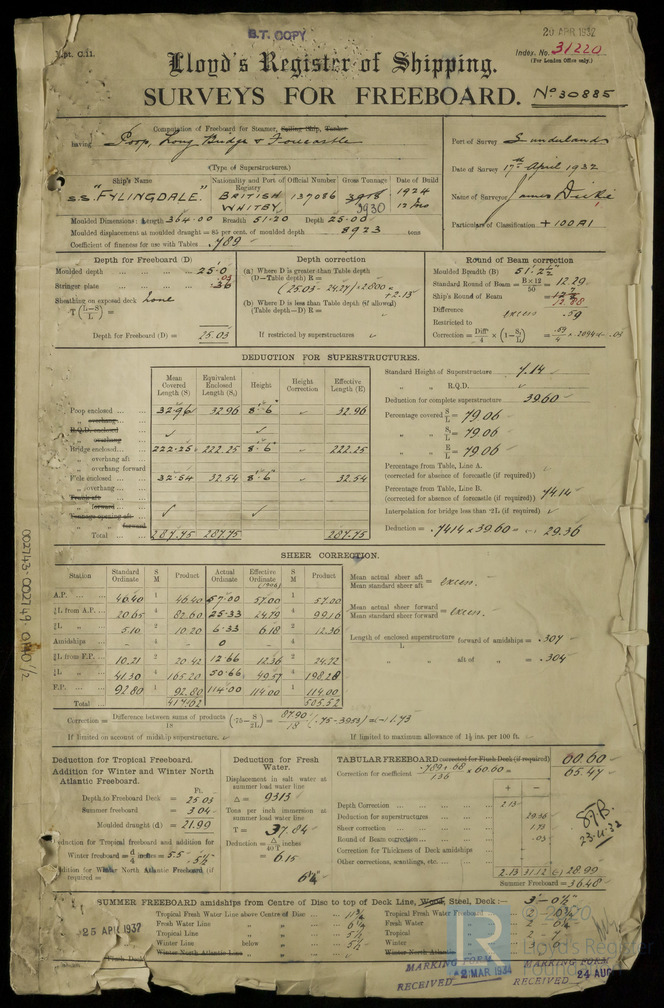 B.T. COPY
20 APR 1932
Rpt. C.11.
Index. No. 31220
(For London Office only.)
Lloyd's Register of Shipping.
SURVEYS FOR FREEBOARD.
No 30885
Computation of Freeboard for Steamer, Sailing Ship, Tanker
having Poop, Long Bridge & Forecastle
(Type of Superstructures.)
Port of Survey Sunderland
Date of Survey 17th April 1932
Name of Surveyor James Dickie
Particulars of Classification +100A1
Ship's Name
Nationality and Port of Registry
Official Number
Gross Tonnage
Date of Build
S.S. "FYLINGDALE."
BRITISH
WHITBY
137086
3918
3930
1924
12 mo
Moulded Dimensions: Length 364.00 Breadth 51.20 Depth 25.00
Moulded displacement at moulded draught = 85 per cent. of moulded depth 8923 tons
Coefficient of fineness for use with Tables .789
Depth for Freeboard (D)
Moulded depth 25.0
.03
Stringer plate .36
Sheathing on exposed deck none
T (L-S/L) =
Depth for Freeboard (D) = 25.03
Depth correction
(a) Where D is greater than Table depth
(D-Table depth) R =
(25.03 - 24.27) 2.800 = + 2.13
(b) Where D is less than Table depth (if allowed)
(Table depth-D) R =
If restricted by superstructures
Round of Beam correction
Moulded Breadth (B) 51.2½
Standard Round of Beam = B×12/50 = 12.29
Ship's Round of Beam = 12.88
Difference excess .59
Restricted to
Correction = Diffce/4 × (1-S/L) = .59/4 × .2094 = .03
DEDUCTION FOR SUPERSTRUCTURES.
Mean Covered Length (S)
Equivalent Enclosed Length (S₁)
Height
Height Correction
Effective Length (E)
Poop enclosed 32.96 32.96 8'-6" 32.96
„ overhang
R.Q.D. enclosed
„ overhang
Bridge enclosed 222.25 222.25 8'-6" 222.25
„ overhang aft
„ overhang forward
F'cle enclosed 32.54 32.54 8'-6" 32.54
„ overhang
Trunk aft
„ forward
Tonnage opening aft
„ forward
Total 287.75 287.75 287.75
Standard Height of Superstructure 7.14
„ „ R.Q.D.
Deduction for complete superstructure 39.60
Percentage covered S/L = 79.06
„ „ S₁/L = 79.06
„ „ E/L = 79.06
Percentage from Table, Line A.
(corrected for absence of forecastle (if required))
Percentage from Table, Line B.
(corrected for absence of forecastle (if required)) 74.14
Interpolation for bridge less than ·2L (if required)
Deduction = .7414 × 39.60 = (-) 29.36
SHEER CORRECTION.
Station
Standard Ordinate
S M
Product
Actual Ordinate
Effective Ordinate
S M
Product
A.P. 46.40 1 46.40 57.00 57.00 1 57.00
⅙L from A.P. 20.65 4 82.60 25.33 24.79 4 99.16
⅓L „ 5.10 2 10.20 6.33 6.18 2 12.36
Amidships - 4 - 0 4
⅓L from F.P. 10.21 2 20.42 12.66 12.36 2 24.72
⅙L „ 41.30 4 165.20 50.66 49.57 4 198.28
F.P. 92.80 1 92.80 114.00 114.00 1 114.00
Total 417.62 505.52
Mean actual sheer aft / Mean standard sheer aft = excess.
Mean actual sheer forward / Mean standard sheer forward = excess.
Length of enclosed superstructure / L forward of amidships = .307
„ „ aft of „ = .304
Correction = Difference between sums of products/18 (·75-S/2L) = 87.90/18 (.75-.3953) = (-) 1.73
If limited on account of midship superstructure.
If limited to maximum allowance of 1½ ins. per 100 ft.
Deduction for Tropical Freeboard.
Addition for Winter and Winter North
Atlantic Freeboard.
Ft.
Depth to Freeboard Deck = 25.03
Summer freeboard = 3.04
Moulded draught (d) = 21.99
Deduction for Tropical freeboard and addition for
Winter freeboard = d/4 inches = 5.5 - 5½
5½
Addition for Winter North Atlantic Freeboard (if
required) =
Deduction for Fresh
Water.
Displacement in salt water at
summer load water line
Δ = 9313
Tons per inch immersion at
summer load water line
T = 37.84
Deduction = Δ/40 T inches
= 6.15
6¼
TABULAR FREEBOARD corrected for Flush Deck (if required) 60.60
Correction for coefficient .789+.68/1.36 × 60.60 = 65.47
+ -
Depth Correction 2.13
Deduction for superstructures 29.36
Sheer correction 1.73
Round of Beam correction .03
Correction for Thickness of Deck amidships
Other corrections, scantlings, etc.
2.13 31.12 (-) 28.99
Summer Freeboard = 36.48
23.4.32
SUMMER FREEBOARD amidships from Centre of Disc to top of Deck Line, Wood, Steel, Deck :- 3'-0½"
Tropical Fresh Water Line above Centre of Disc 11¾
Fresh Water Line „ 6¼
Tropical Line „ 5½
Winter Line below „ 5½
Winter North Atlantic Line „
Tropical Fresh Water Freeboard
Fresh Water „
Tropical „
Winter „
Winter North Atlantic „
25 APR 1932
MARKING FORM
2 MAR 1934
RECEIVED
MARKING FORM
24 AUG
RECEIVED
LR
© 2020
Lloyd's Register
Foundation
002743-002749-0140 1/2